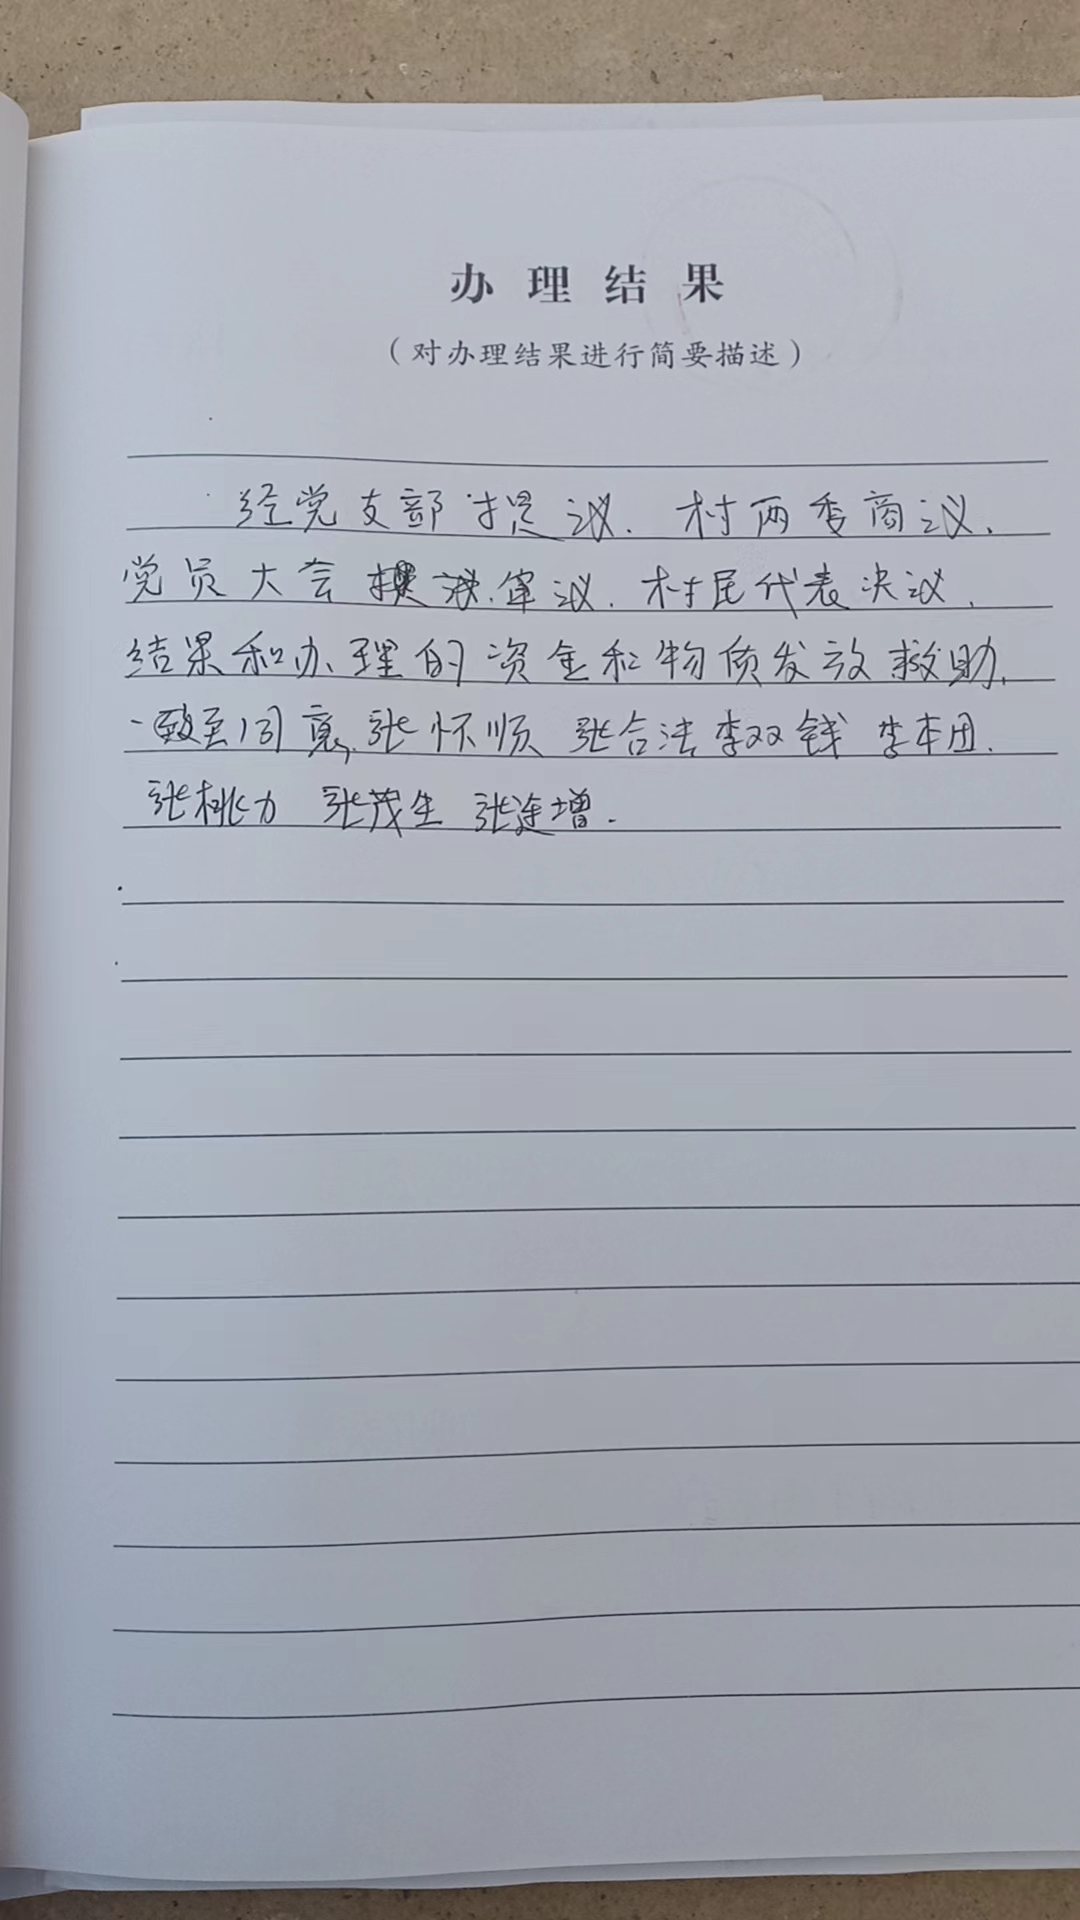 办理结果
（对办理结果进行简要描述）
经党支部提议.村两委商议.
党员大会审议.村民代表决议.
结果和办理的资金和物质发放救助.
一致至同意.张怀顺 张合法 李双钱 李本团.
张桃力 张茂生 张连增.